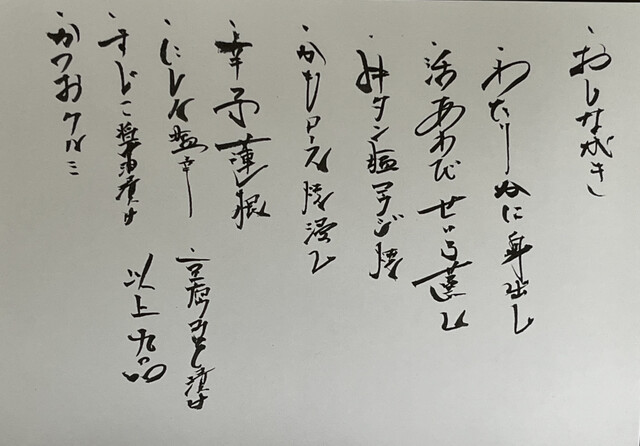 ・おしながき
・わたりがに身出し
・活あわびせいろ蒸し
・牛タン塩コウジ焼
・かもロース焼浸し
・辛子蓮根
・にしん塩辛
・豆腐みそ漬け
・すじこ醤油漬け
以上九品
・かつおクルミ